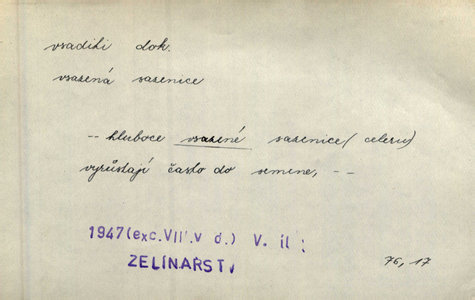 vsaditi dok.
vsazená sazenice
-- hluboce vsazené sazenice (celeru)
vyrůstají často do semene, --
1947 (exc. VII. V d.) V. il:
ZELINARSTV
76, 17